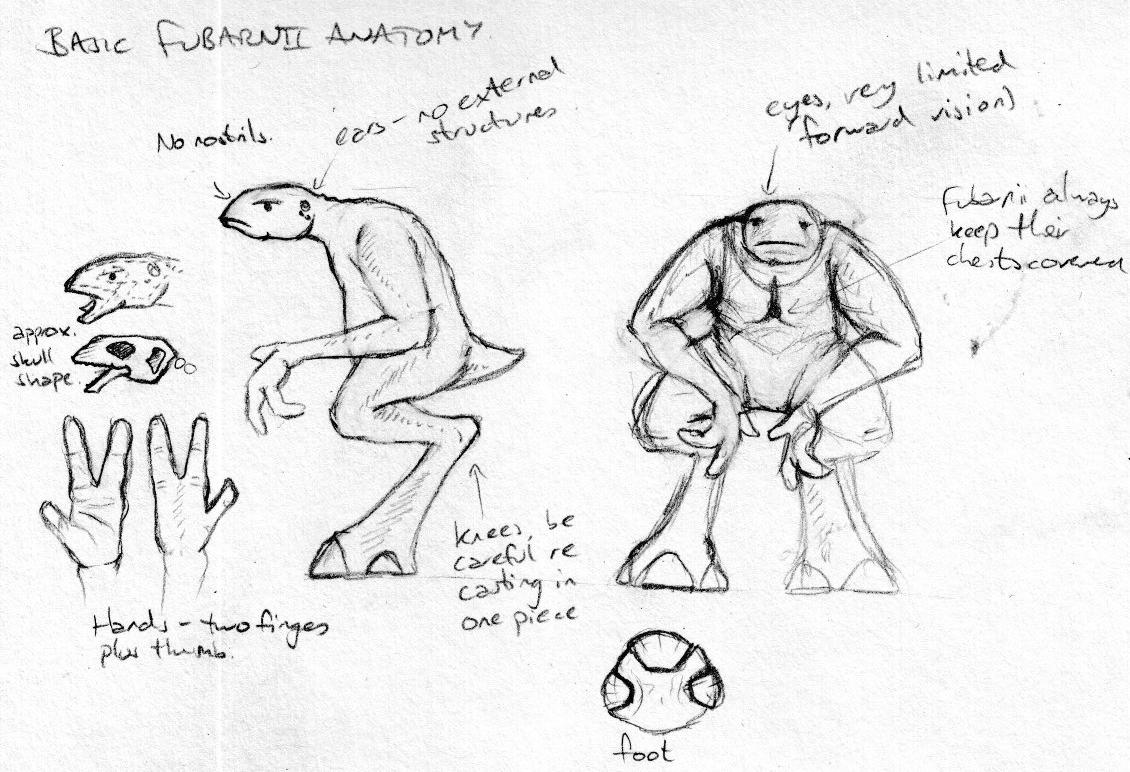 BASIC FUBARNII ANATOMY
No nostrils.
ears - no external
structures
eyes, very limited
forward vision)
Fubarnii always
keep their
chests covered
approx.
skull
shape.
knees, be
careful re
casting in
one piece
Hands - two fingers
plus thumb.
foot